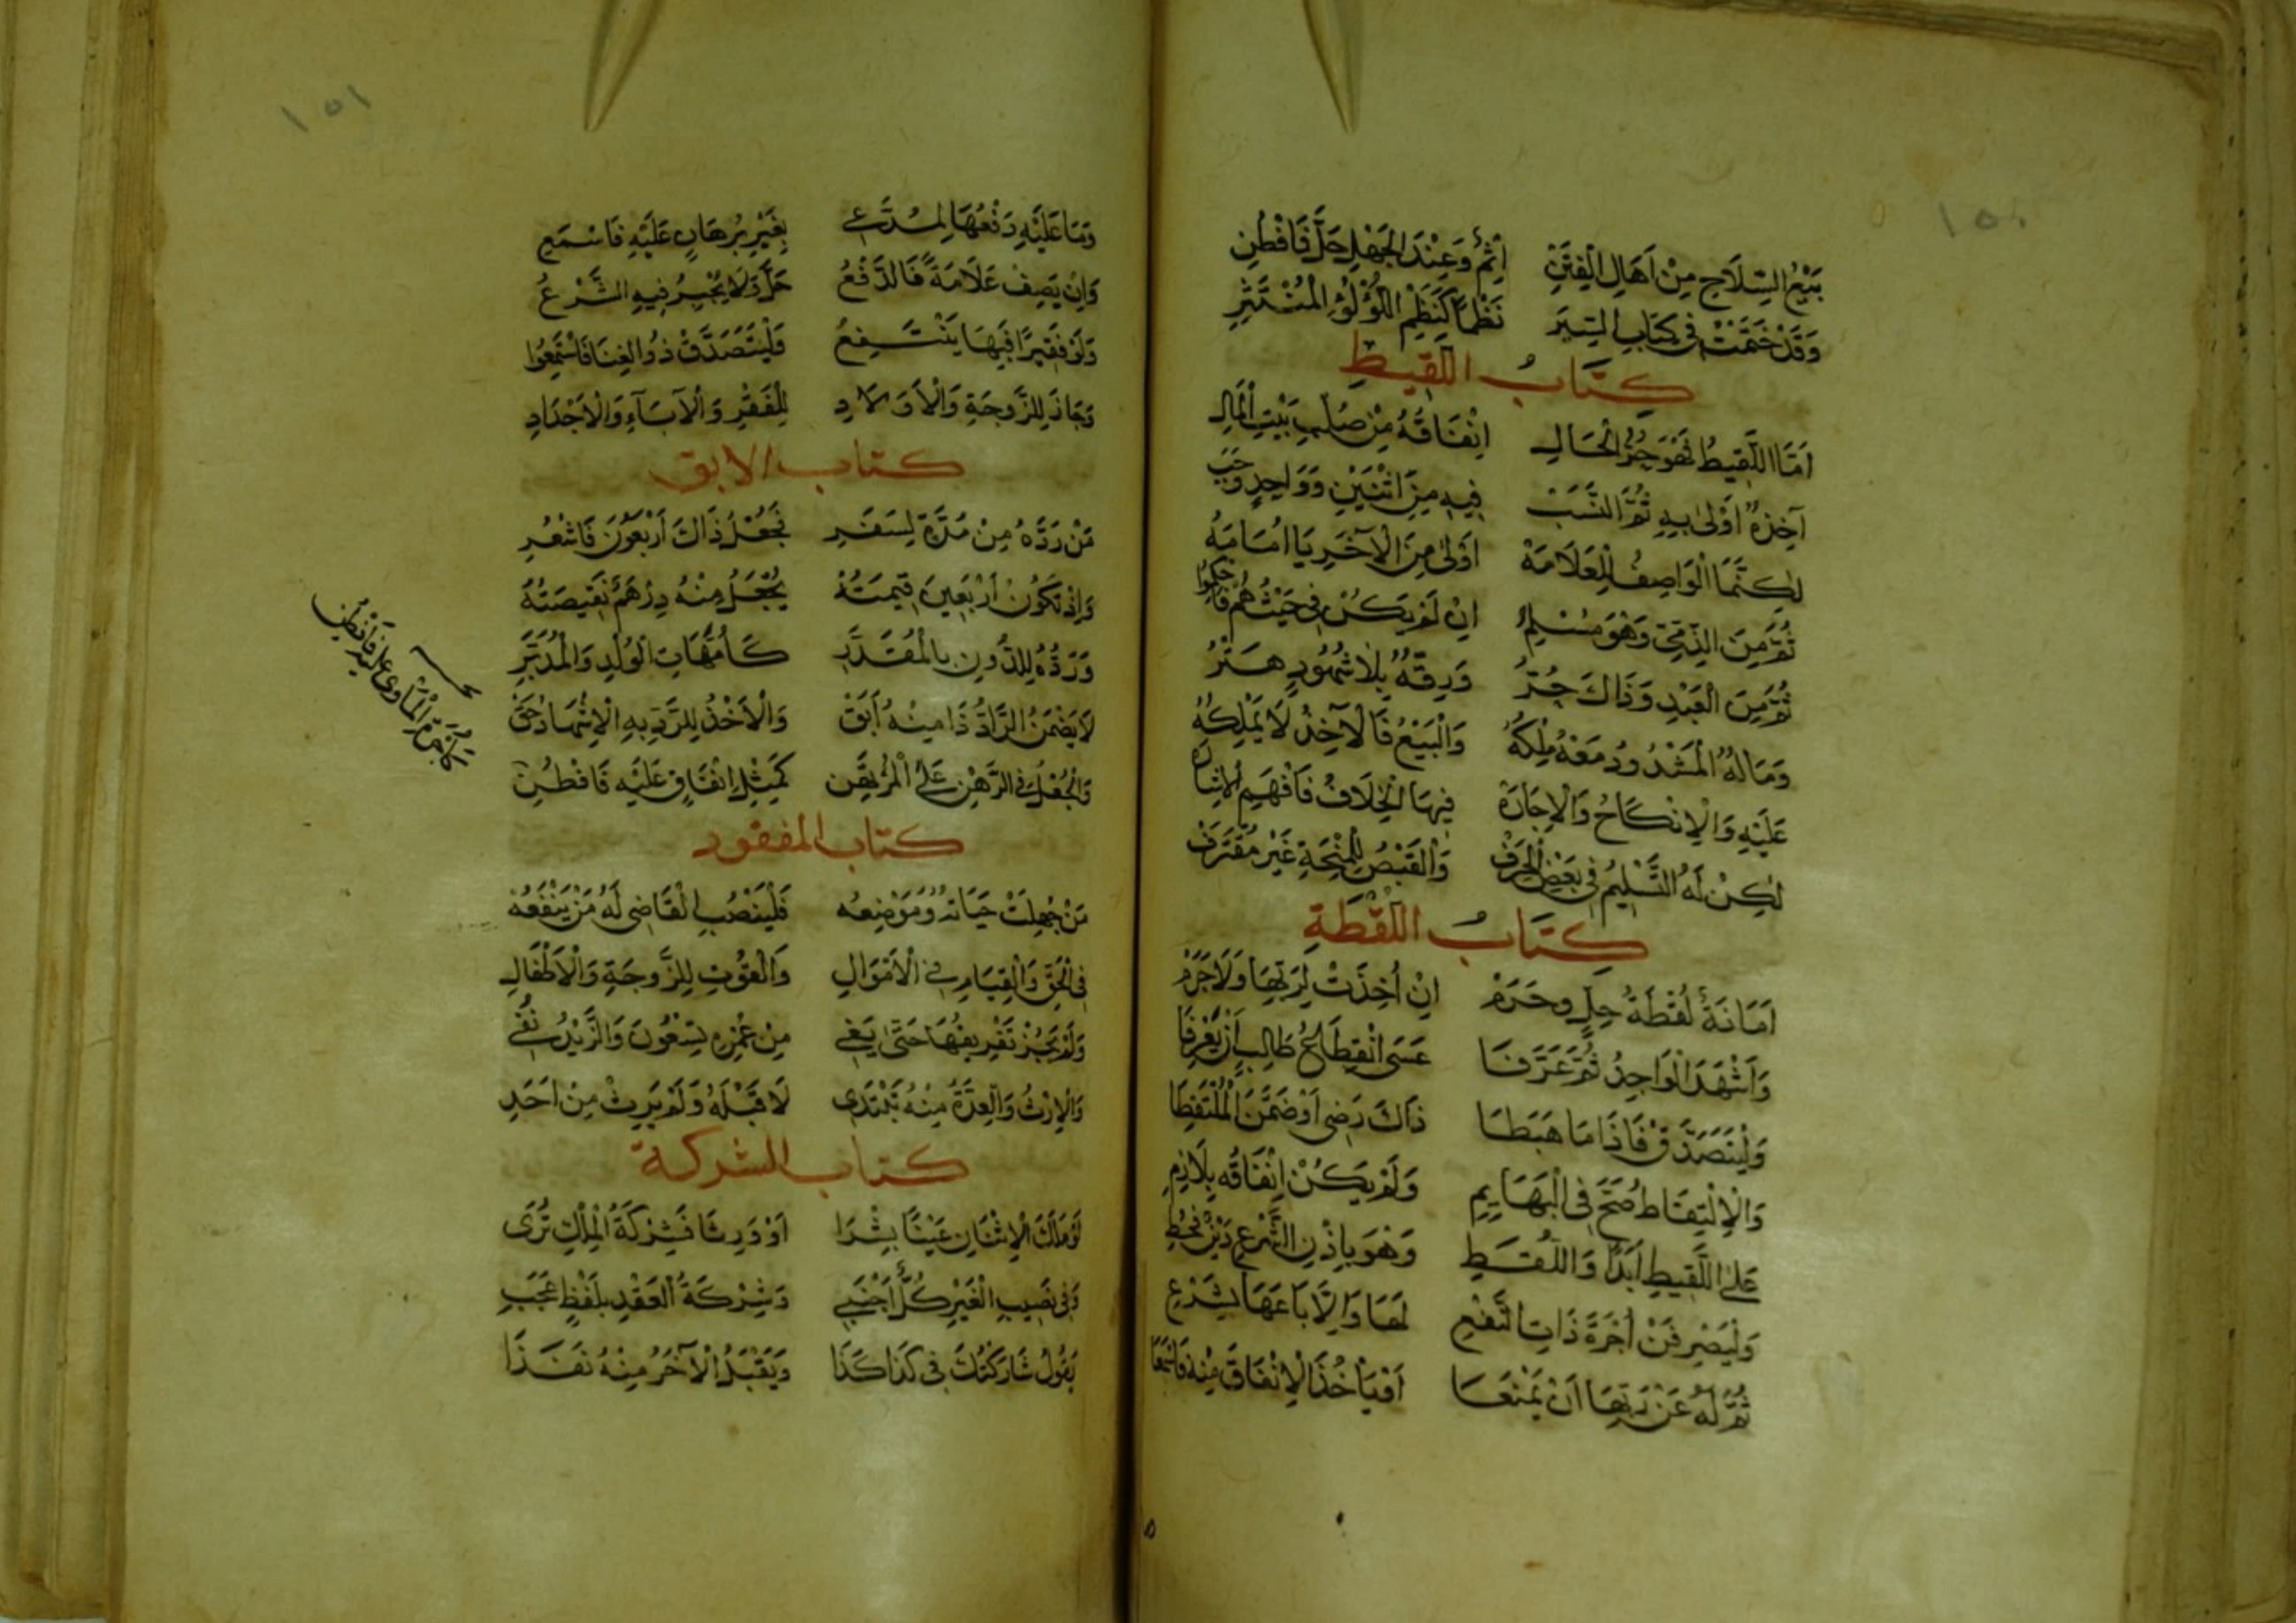 ١٥٠
بَيْعُ السِّلَاحِ مِنْ اَهَالِ الْفِتَنِ اِثْمٌ وَعِنْدَ الْجَهْلِ حَلَّ فَافْطُنِ
وَقَدْ خَتَمْتُ فى كِتَابِ السِّيَرِ نَظْمًا كَنَظْمِ اللُّؤْلُؤِ الْمُنْتَثِرِ
كِتَابُ اللَّقِيطِ
اَمَّا اللَّقِيطُ فَهْوَ حُرُّ الْحَالِ اِنْفَاقُهُ مِنْ صُلْبِ بَيْتِ الْمَالِ
آخِذُهُ اَوْلىٰ بِهِ ثُمَّ النَّسَبْ فِيهِ مِنَ اثْنَيْنِ وَوَاحِدٍ وَجَبَ
لٰكِنَّمَا الْوَاصِفُ لِلْعَلَامَهْ اَوْلىٰ مِنَ الْآخَرِ يَا اُسَامَهُ
ثُمَّ مِنَ الذِّمِّيّ وَهْوَ مُسْلِمُ اِنْ لَمْ يَكُنْ فى حَيْثُ هُمْ فَاحْكُمُوا
ثُمَّ مِنَ الْعَبْدِ وَذَاكَ حُرُّ وَرِقُّهُ بِلَا شُهُودٍ هَتْرُ
وَمَالُهُ الْمَشْدُودُ مَعْهُ مِلْكُهُ وَالْبَيْعُ فَالْآخِذُ لَا يَمْلِكُهُ
عَلَيْهِ وَالْاِنْكَاحُ وَالْاِجَارَهْ فِيهَا الْخِلَافُ فَافْهَمِ الْاِشَارَه
لٰكِنْ لَهُ التَّسْلِيمُ فى بَعْضِ الْحِرَفْ وَالْقَبْضُ لِلْمِنْحَةِ غَيْرَ مُقْتَرَفْ
كِتَابُ اللُّقْطَةِ
اَمَانَةٌ لُقْطَةُ حِلٍّ وحَرَمْ اِنْ اُخِذَتْ لِرَبِّهَا وَلَا جَرَمْ
وَاَشْهَدَ الْوَاجِدُ ثُمَّ عَرَّفَا عَسَى انْقِطَاعُ طَالِبٍ اَنْ يَعْرِفَا
وَلْيَتَصَدَّقْ فَاِذَا مَا هَبَطَا ذَاكَ رَضِى اَوْ ضَمَّنَ الْمُلْتَقِطَا
وَالْاِلْتِقَاطُ صَحَّ فِى الْبَهَايِمِ وَلَمْ يَكُنْ اِنْفَاقُه بِلَازِمِ
عَلىٰ اللَّقِيطِ اَبَدًا وَاللُّقَطِ وَهْوَ بِاِذْنِ الشَّرْعِ دَيْنٌ فَحُطِ
وَلْيَصْرِفَنْ اُجْرَةَ ذَاتِ النَّفْعِ لَهَا وَاِلَّا بَاعَهَا بِشَرْعِ
ثُمَّ لَهُ عَنْ رَبِّهَا اَنْ يَمْنَعَا اَوْ يَأْخُذَ الْاِنْفَاقَ مِنْهُ فَاسْمَعَا
١٥١
وَمَا عَلَيْهِ دَفْعُهَا لِمُدَّعِى بِغَيْرِ بُرْهَانٍ عَلَيْهِ فَاسْمَعِ
وَاِنْ يَصِفْ عَلَامَةً فَالدَّفْعُ حَلَّ وَلَا يُجْبِرُ فِيهِ الشَّرْعُ
وَلَوْ فَقِيرًا فَبِهَا يَنْتَفِعُ وَلْيَتَصَدَّقْ ذُو الْغِنَا فَاسْتَمِعُوا
وَجَازَ لِلزَّوْجَةِ وَالْاَوْلَادِ لِلْفَقْرِ وَالْآبَاءِ وَالْاَجْدَادِ
كتاب الابق
مَنْ رَدَّهُ مِنْ مُدَّةٍ لِسَفَرِ فَجُعْلُ ذَاكَ اَرْبَعُونَ فَاشْعُرِ
وَاِذْ تَكُونُ اَرْبَعِينَ قِيمَتُهْ يُجْعَلُ مِنْهُ دِرْهَمٌ نَقِيصَتُهُ
وَرَدُّهُ لِلدُّونِ بِالْمُقَدَّرِ كَاُمَّهَاتِ الْوُلْدِ وَالْمُدَبَّرِ
لَا يَضْمَنُ الرَّادُّ ذَا مِنْهُ اَبَقْ وَالْاَخْذُ لِلرَّدِّ بِهِ الْاِشْهَادُ حَقّ
وَالْجُعْلُ فى الرَّهْنِ عَلَى الْمُرْتَهِنِ كَمِثْلِ اِنْفَاقٍ عَلَيْهِ فَافْطُنِ
كتاب المفقود
مَنْ جُهِلَتْ حَيَاتُهُ وَمَوْضِعُه فَلْيَنْصُبِ الْقَاضِى لَهُ مَنْ يَنْفَعُهُ
فى الْحَقِّ وَالْقِيَامِ فى الْاَمْوَالِ وَالْقُوْتِ لِلزَّوجَةِ وَالْاَطْفَالِ
وَلَمْ يَجُزْ تَفْرِيقُهَا حَتّٰى يَفِى مِنْ عُمْرِهِ تِسْعُونَ وَالزَّيْدُ نُفِى
وَالْاِرْثُ وَالْعِدَّةُ مِنْهُ تَبْتَدِى لَا قَبْلَهُ وَلَمْ يَرِثْ مِنْ اَحَدِ
كتاب الشركة
لَوْ مَلَكَ الْاِثْنَانِ عَيْنًا بِشِرَا اَوْ وَرِثَا فَشِرْكَةُ الْمِلْكِ تُرَى
وَفى نَصِيبِ الْغَيْرِ كُلٌّ اَجْنَبِى وَشِرْكَةُ الْعَقْدِ بِلَفْظٍ عَجَبِ
يَقُولُ شَارَكْتُكَ فى كَذَا كَذَا وَيَقْبَلُ الْآخَرُ مِنْهُ نَفَذَا